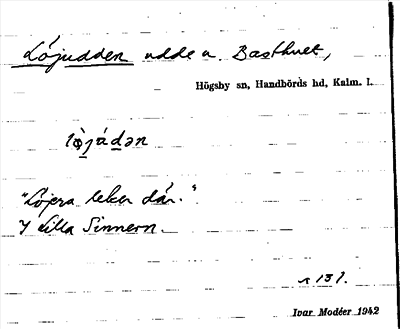 Löjudden udde u. Basthult,
Högsby sn, Handbörds hd, Kalm. l.
lø̀júdən
"Löjera leker där."
I Lilla Sinnern.
s 131.
Ivar Modéer 1942